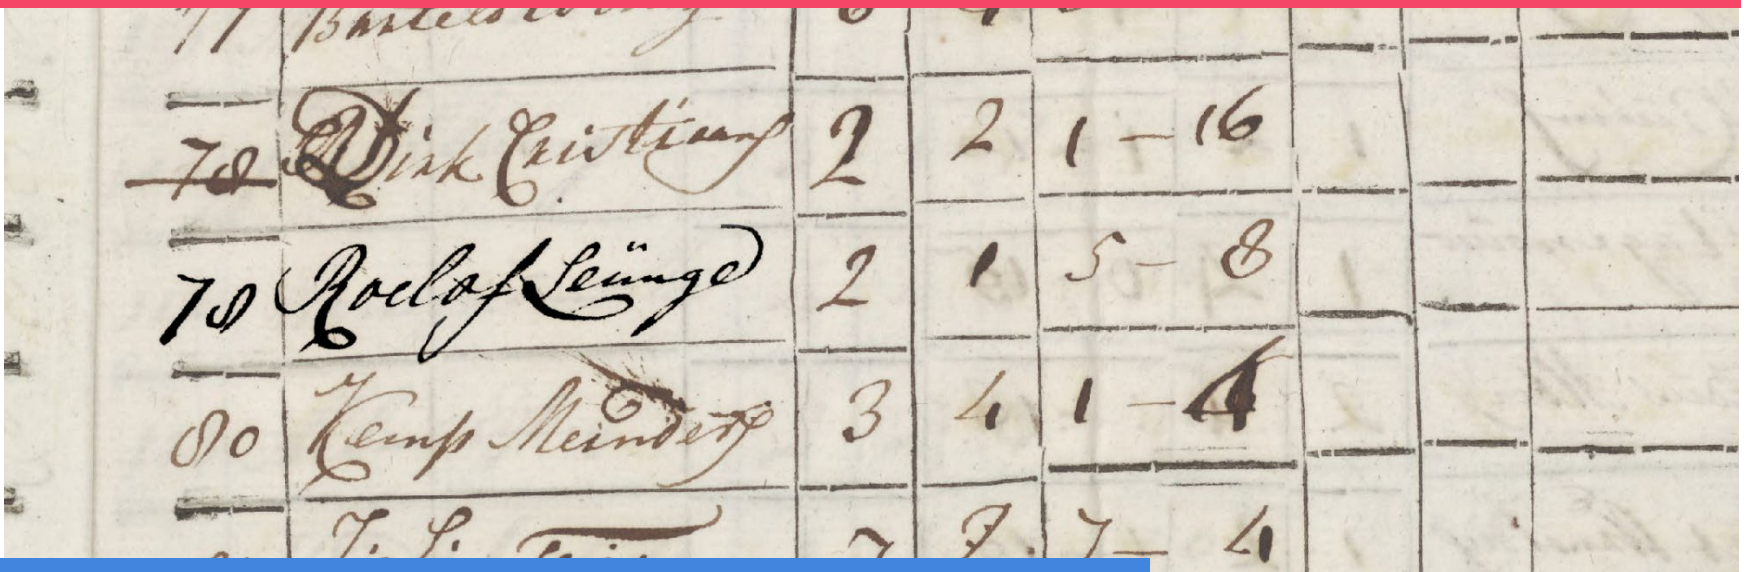 77 Bartels
78 Dirk Cristiaans 2 2 1 - 16
78 Roelof Leünge 2 1 5 - 8
80 Kemp Meinders 3 4 1 - 4
7 7 7 - 4